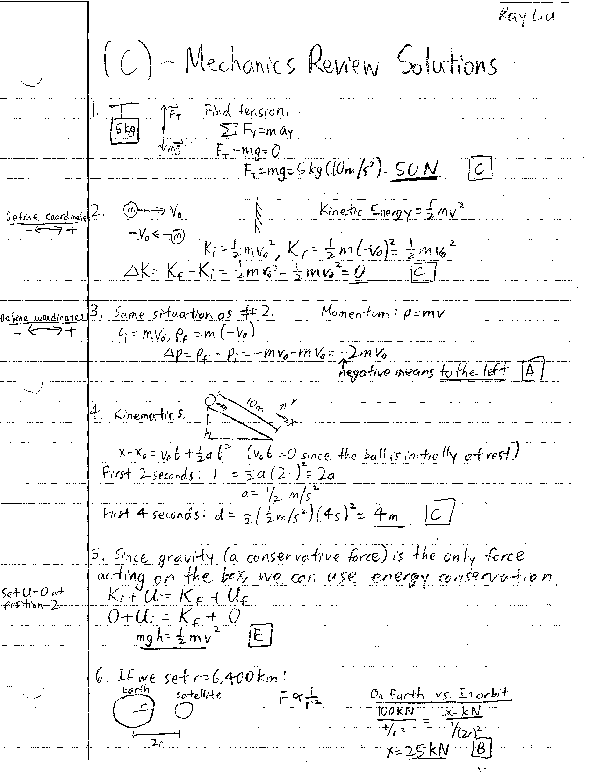 Ray Liu
1(C) - Mechanics Review Solutions
1. Find tension.
5kg F_T mg
ΣF_y = ma_y
F_T - mg = 0
F_T = mg = 5kg(10m/s²) = 50N C
Define coordinates - ←→ +
2. m → V₀ Kinetic Energy = ½mv²
-V₀ ← m
K_i = ½mv₀², K_f = ½m(-v₀)² = ½mv₀²
ΔK = K_f - K_i = ½mv₀² - ½mv₀² = 0 C
Define coordinates - ←→ +
3. Same situation as #2. Momentum: p = mv
p_i = mv₀, p_f = m(-v₀)
Δp = p_f - p_i = -mv₀ - mv₀ = -2mv₀
negative means to the left A
4. Kinematics. 10m h
x - x₀ = v₀t + ½at² (v₀t = 0 since the ball is initially at rest)
First 2 seconds: 1 = ½a(2)² = 2a
a = ½ m/s²
First 4 seconds: d = ½(½m/s²)(4s)² = 4m C
5. Since gravity (a conservative force) is the only force
acting on the box, we can use energy conservation
Set U=0 at position 2
K_i + U_i = K_f + U_f
0 + U_i = K_f + 0
mgh = ½mv² E
6. If we set r = 6,400km:
Earth satellite F ∝ 1/r² On Earth vs. In orbit
r 2r
100kN / 1/r² = x kN / 1/(2r)²
x = 25kN B